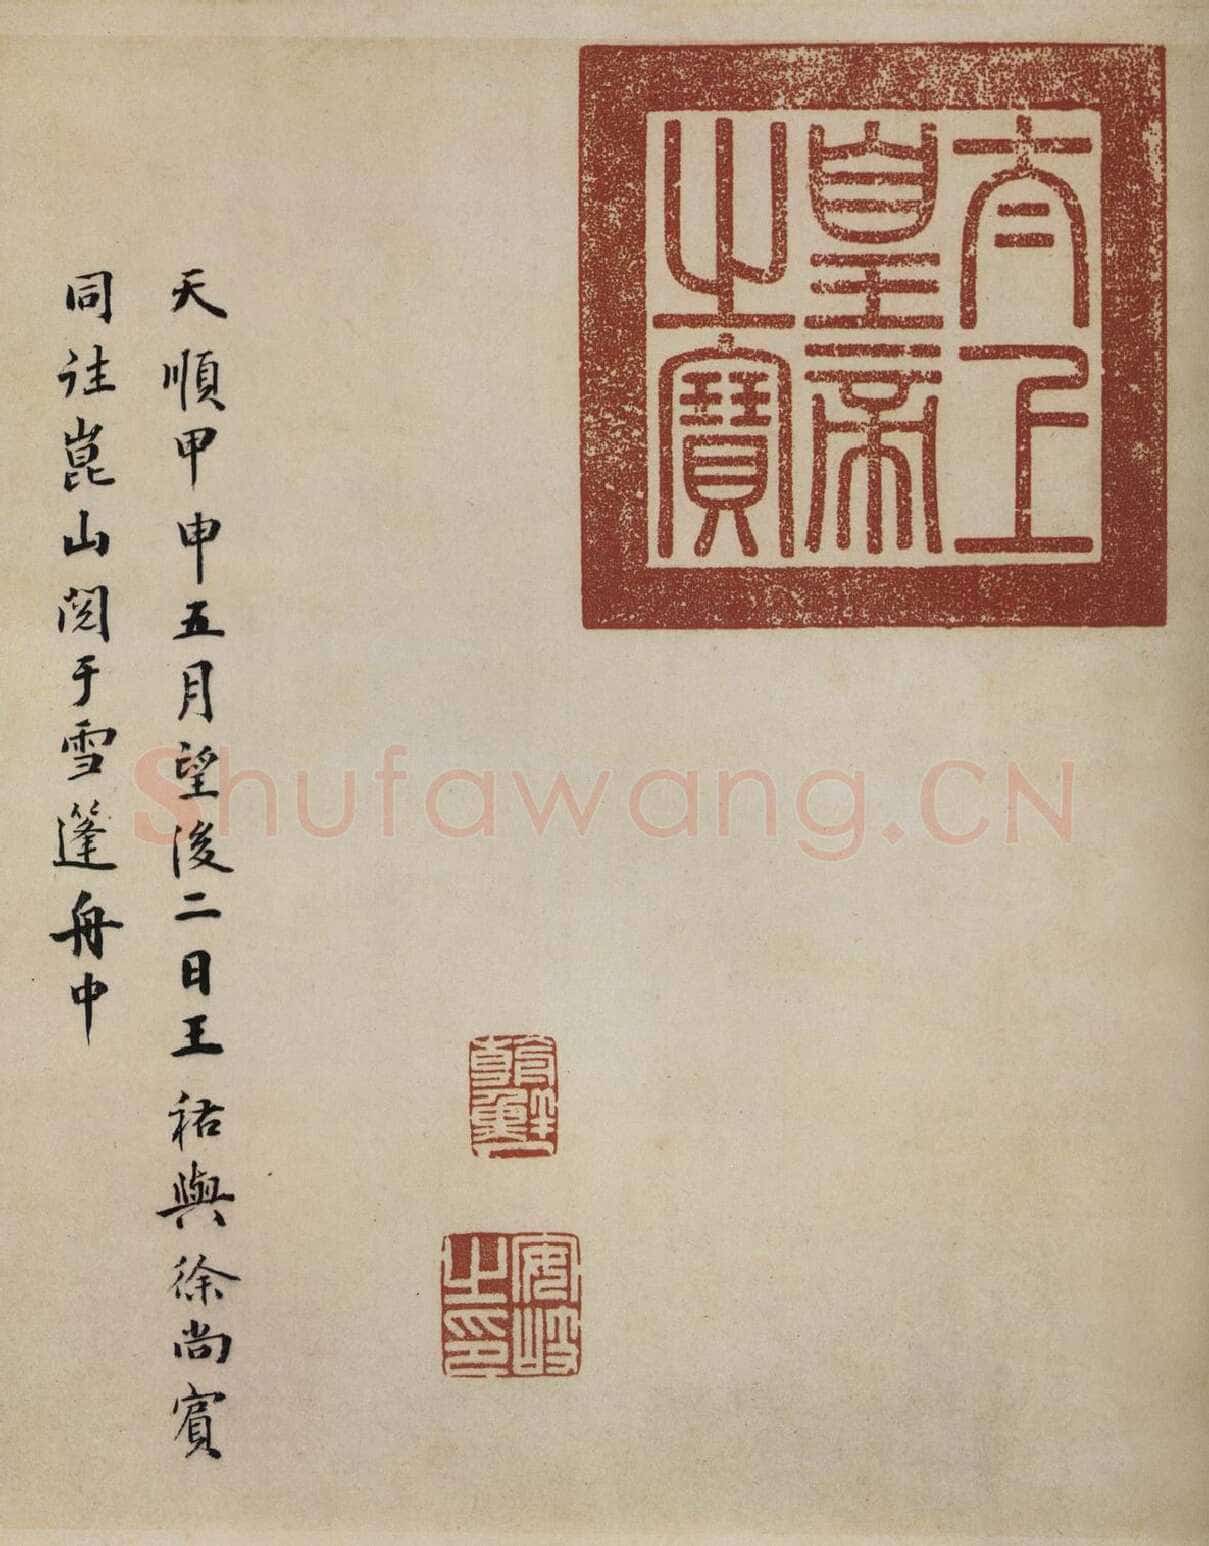 太上
皇帝
之寶
天順甲申五月望後二日王祐與徐尚賓
同往崑山閱于雪篷舟中
安岐
之印
Shufawang.CN